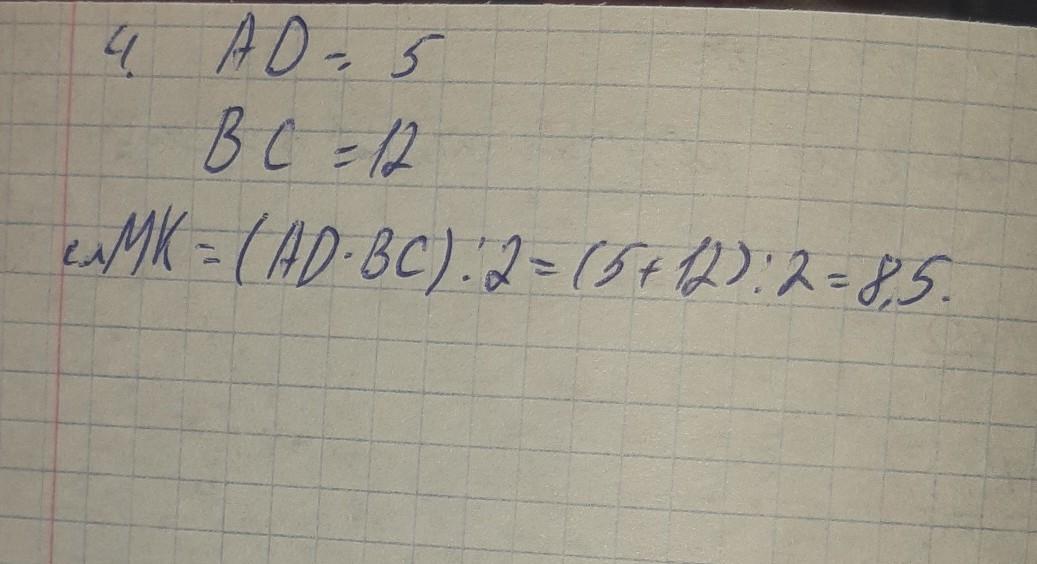 4. AD = 5
BC = 12
слMK = (AD · BC) : 2 = (5 + 12) : 2 = 8,5.